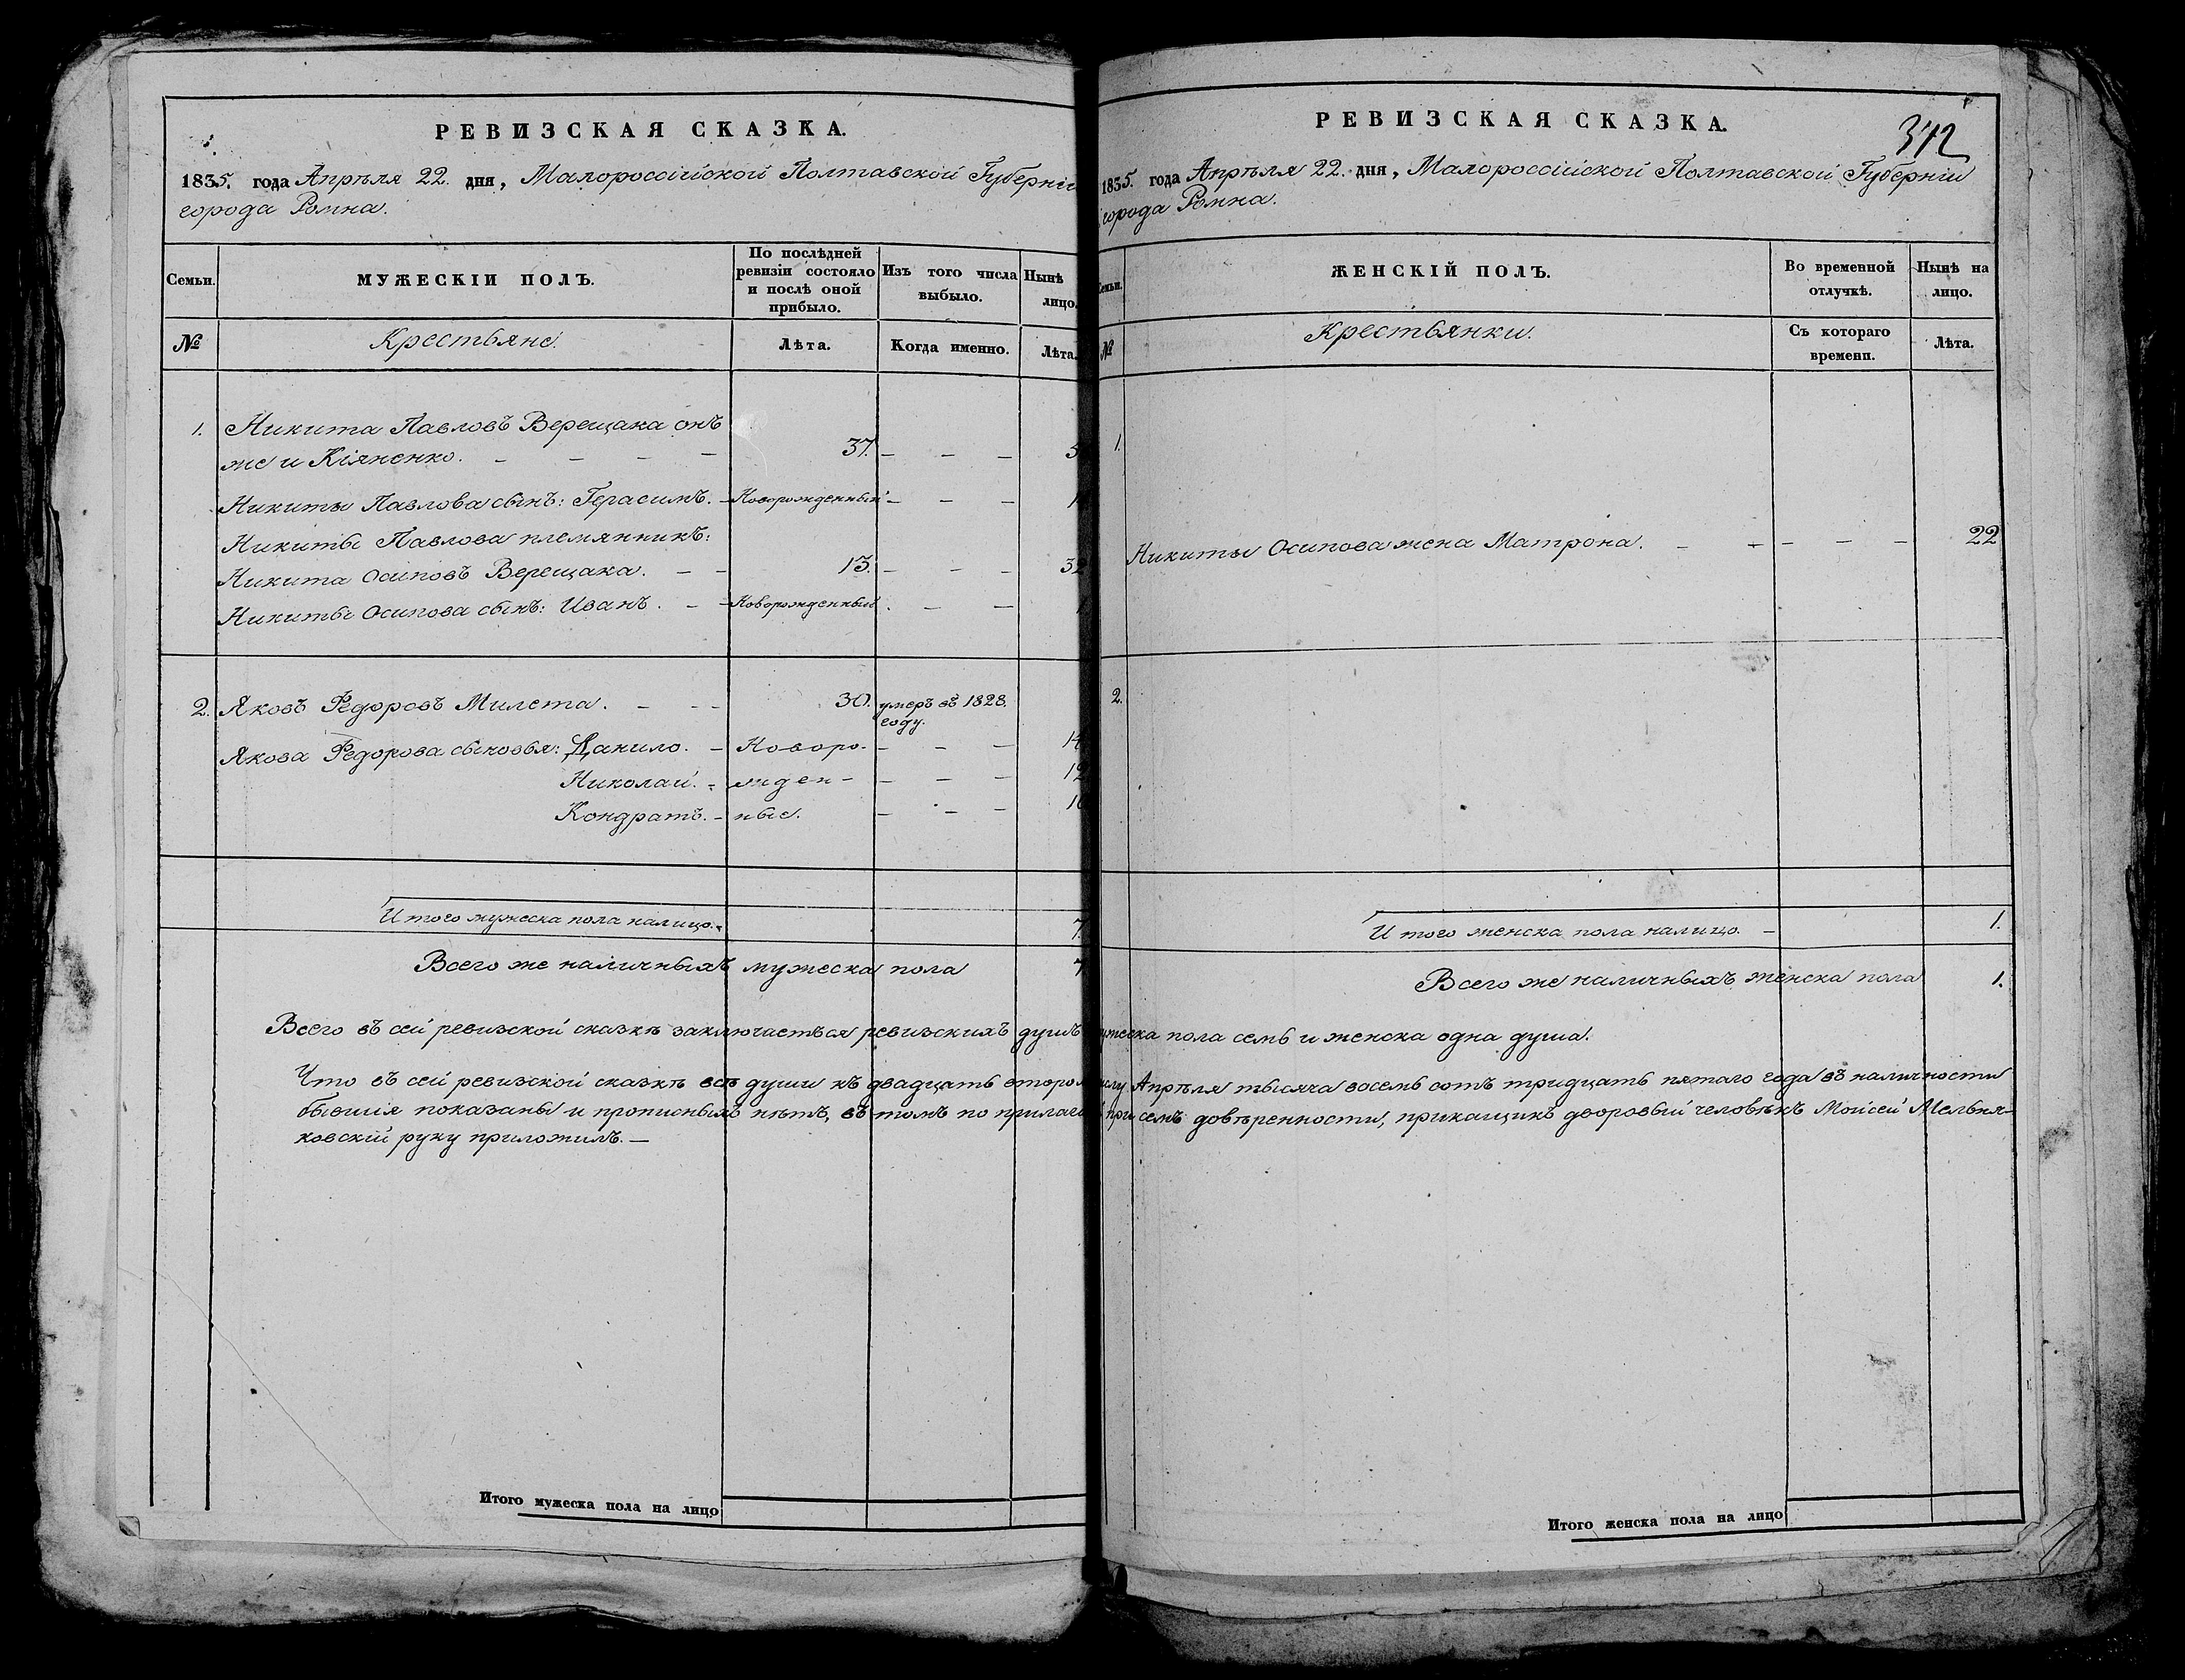 РЕВИЗСКАЯ СКАЗКА.
1835. года Апрѣля 22. дня, Малороссійской Полтавской Губерніи
города Ромна.
Семьи.
МУЖЕСКІИ ПОЛЪ.
По послѣдней
ревизіи состояло
и послѣ оной
прибыло.
Изъ того числа
выбыло.
Нынѣ
лицо.
№
Крестьяне.
Лѣта.
Когда именно.
Лѣта.
1. Никита Павловъ Верещака онъ
же и Кіяненко. — — — — 37. — — —
Никиты Павлова сынъ: Герасимъ. — Новорожденный — — —
Никиты Павлова племянникъ:
Никита Осиповъ Верещака. — — 13. — — — 32
Никиты Осипова сынъ: Иванъ. — — Новорожденный. — —
2. Яковъ Федоровъ Милета. — — — 30. умеръ въ 1828.
году.
Якова Федорова сыновья: Данило. — Новоро- — — — 14
Николай. - жден- — — — 12
Кондратъ. - ные. — — — 10
Итого мужеска пола налицо. 7.
Всего же наличныхъ мужеска пола 7
РЕВИЗСКАЯ СКАЗКА.
372
1835. года Апрѣля 22. дня, Малороссійской Полтавской Губерніи
города Ромна.
Семьи.
ЖЕНСКІЙ ПОЛЪ.
Во временной
отлучкѣ.
Нынѣ на
лицо.
№
Крестьянки.
Съ котораго
времени.
Лѣта.
1.
Никиты Осипова жена Матрона. — — — — — 22
2.
Итого женска пола налицо. — 1.
Всего же наличныхъ женска пола 1.
Всего въ сей ревизской сказкѣ заключается ревизскихъ душъ мужеска пола семь и женска одна душа.
Что въ сей ревизской сказкѣ всѣ души къ двадцать второму числу Апрѣля тысяча восемь сотъ тридцать пятаго года въ наличности
бывшія показаны и прописныхъ нѣтъ, въ томъ по прилагаемой при семъ довѣренности, прикащикъ дворовый человѣкъ Моисей Мельня-
ковскій руку приложилъ. —
Итого мужеска пола на лицо
Итого женска пола на лицо